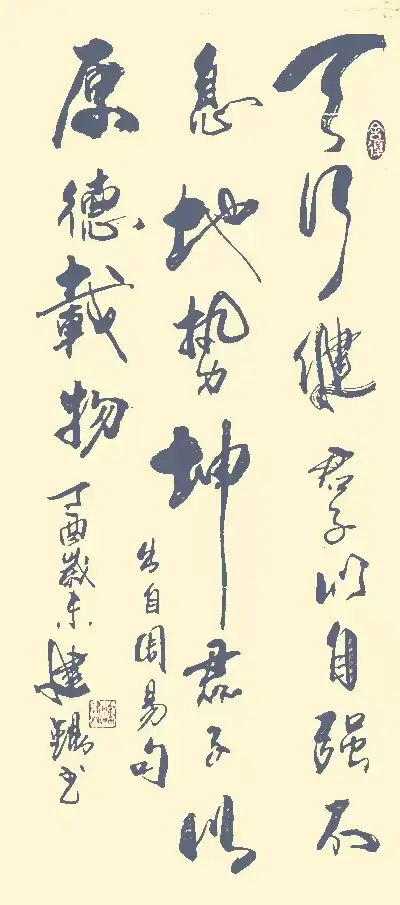 天行健君子以自强不
息地势坤君子以
出自周易句
厚德載物 丁酉歲末建书